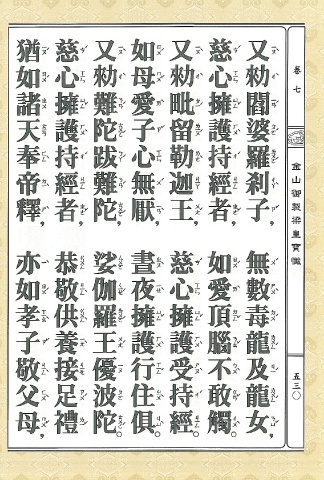 卷七
金山御製梁皇寶懺
五三〇
又勑閻婆羅剎子，無數毒龍及龍女，
慈心擁護持經者，如愛頂腦不敢觸。
又勑毗留勒迦王，慈心擁護受持經。
如母愛子心無厭，晝夜擁護行住俱。
又勑難陀跋難陀，娑伽羅王優波陀。
慈心擁護持經者，恭敬供養接足禮
猶如諸天奉帝釋，亦如孝子敬父母，